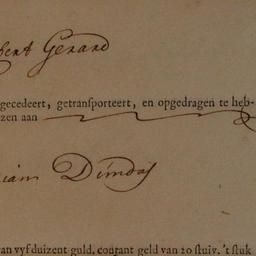 bert Gerard
gecedeert, getransporteert, en opgedragen te heb-
zen aan
iam Dundas
van vyf duizent guld, courant geld van 20 stuiv. 't stuk